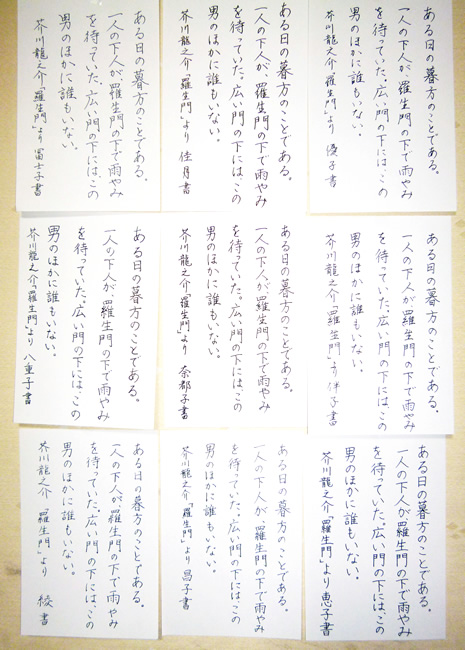 ある日の暮方のことである。
一人の下人が、羅生門の下で雨やみ
を待っていた。広い門の下には、この
男のほかに誰もいない。
芥川龍之介「羅生門」より 優子書
ある日の暮方のことである。
一人の下人が、羅生門の下で雨やみ
を待っていた。広い門の下には、この
男のほかに誰もいない。
芥川龍之介「羅生門」より 佳月書
ある日の暮方のことである。
一人の下人が、羅生門の下で雨やみ
を待っていた。広い門の下には、この
男のほかに誰もいない。
芥川龍之介「羅生門」より 冨士子書
ある日の暮方のことである。
一人の下人が、羅生門の下で雨やみ
を待っていた。広い門の下には、この
男のほかに誰もいない。
芥川龍之介「羅生門」より 伴子書
ある日の暮方のことである。
一人の下人が、羅生門の下で雨やみ
を待っていた。広い門の下には、この
男のほかに誰もいない。
芥川龍之介「羅生門」より 奈都子書
ある日の暮方のことである。
一人の下人が、羅生門の下で雨やみ
を待っていた。広い門の下には、この
男のほかに誰もいない。
芥川龍之介「羅生門」より 八重子書
ある日の暮方のことである。
一人の下人が、羅生門の下で雨やみ
を待っていた。広い門の下には、この
男のほかに誰もいない。
芥川龍之介「羅生門」より 恵子書
ある日の暮方のことである。
一人の下人が、羅生門の下で雨やみ
を待っていた。広い門の下には、この
男のほかに誰もいない。
芥川龍之介「羅生門」より 昌子書
ある日の暮方のことである。
一人の下人が、羅生門の下で雨やみ
を待っていた。広い門の下には、この
男のほかに誰もいない。
芥川龍之介 「羅生門」より 綾書